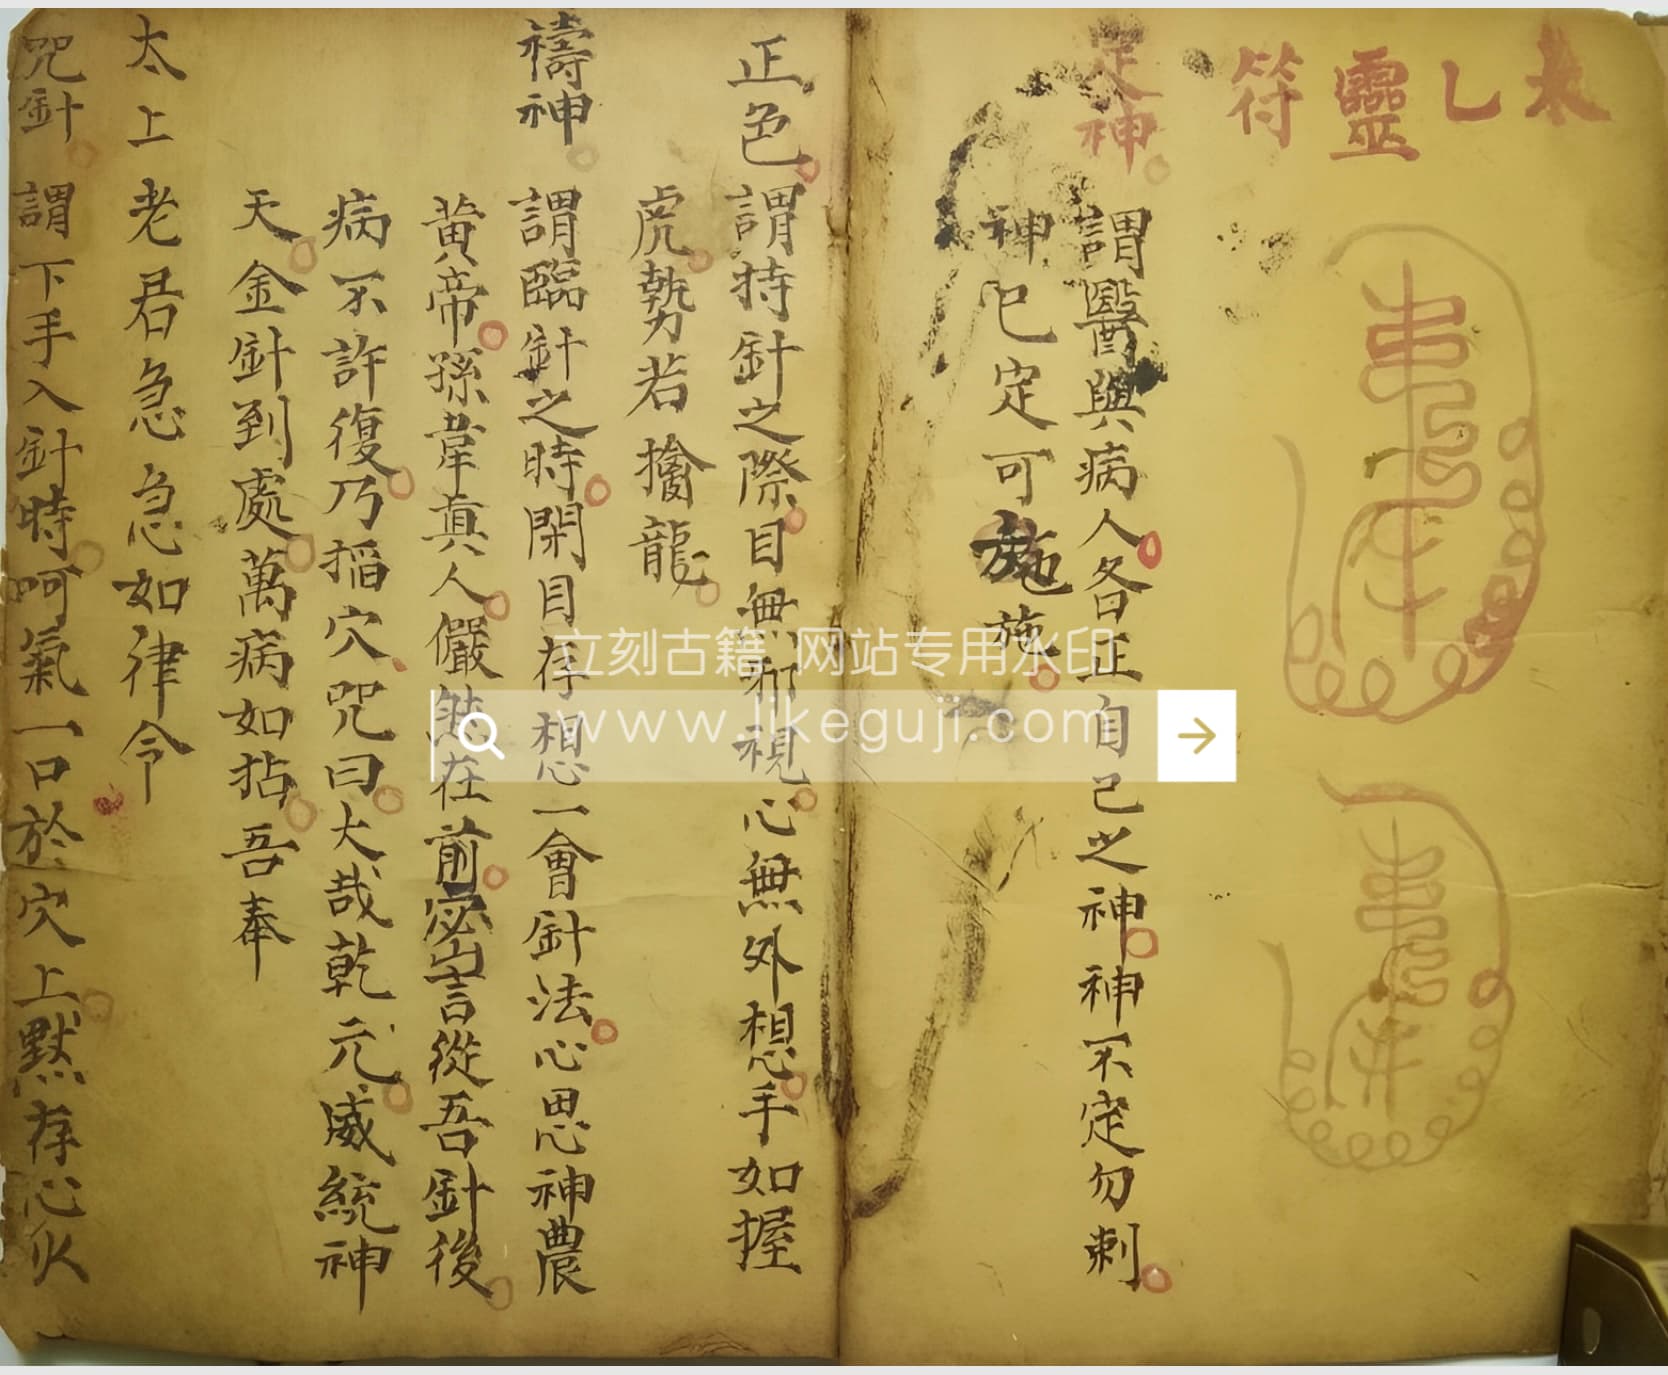 太乙靈符
定神
謂醫與病人各正自己之神神不定勿刺
神已定可施施
正色
謂持針之際目無邪視心無外想手如握
虎勢若擒龍
禱神
謂臨針之時閉目存想一會針法心思神農
黃帝孫韋真人儼然在前密言從吾針後
病不許復乃搯穴咒曰大哉乾元威統神
天金針到處萬病如拈吾奉
太上老君急急如律令
咒針
謂下手入針時呵氣一口於穴上默存心火
立刻古籍 网站专用水印
www.lkeguji.com